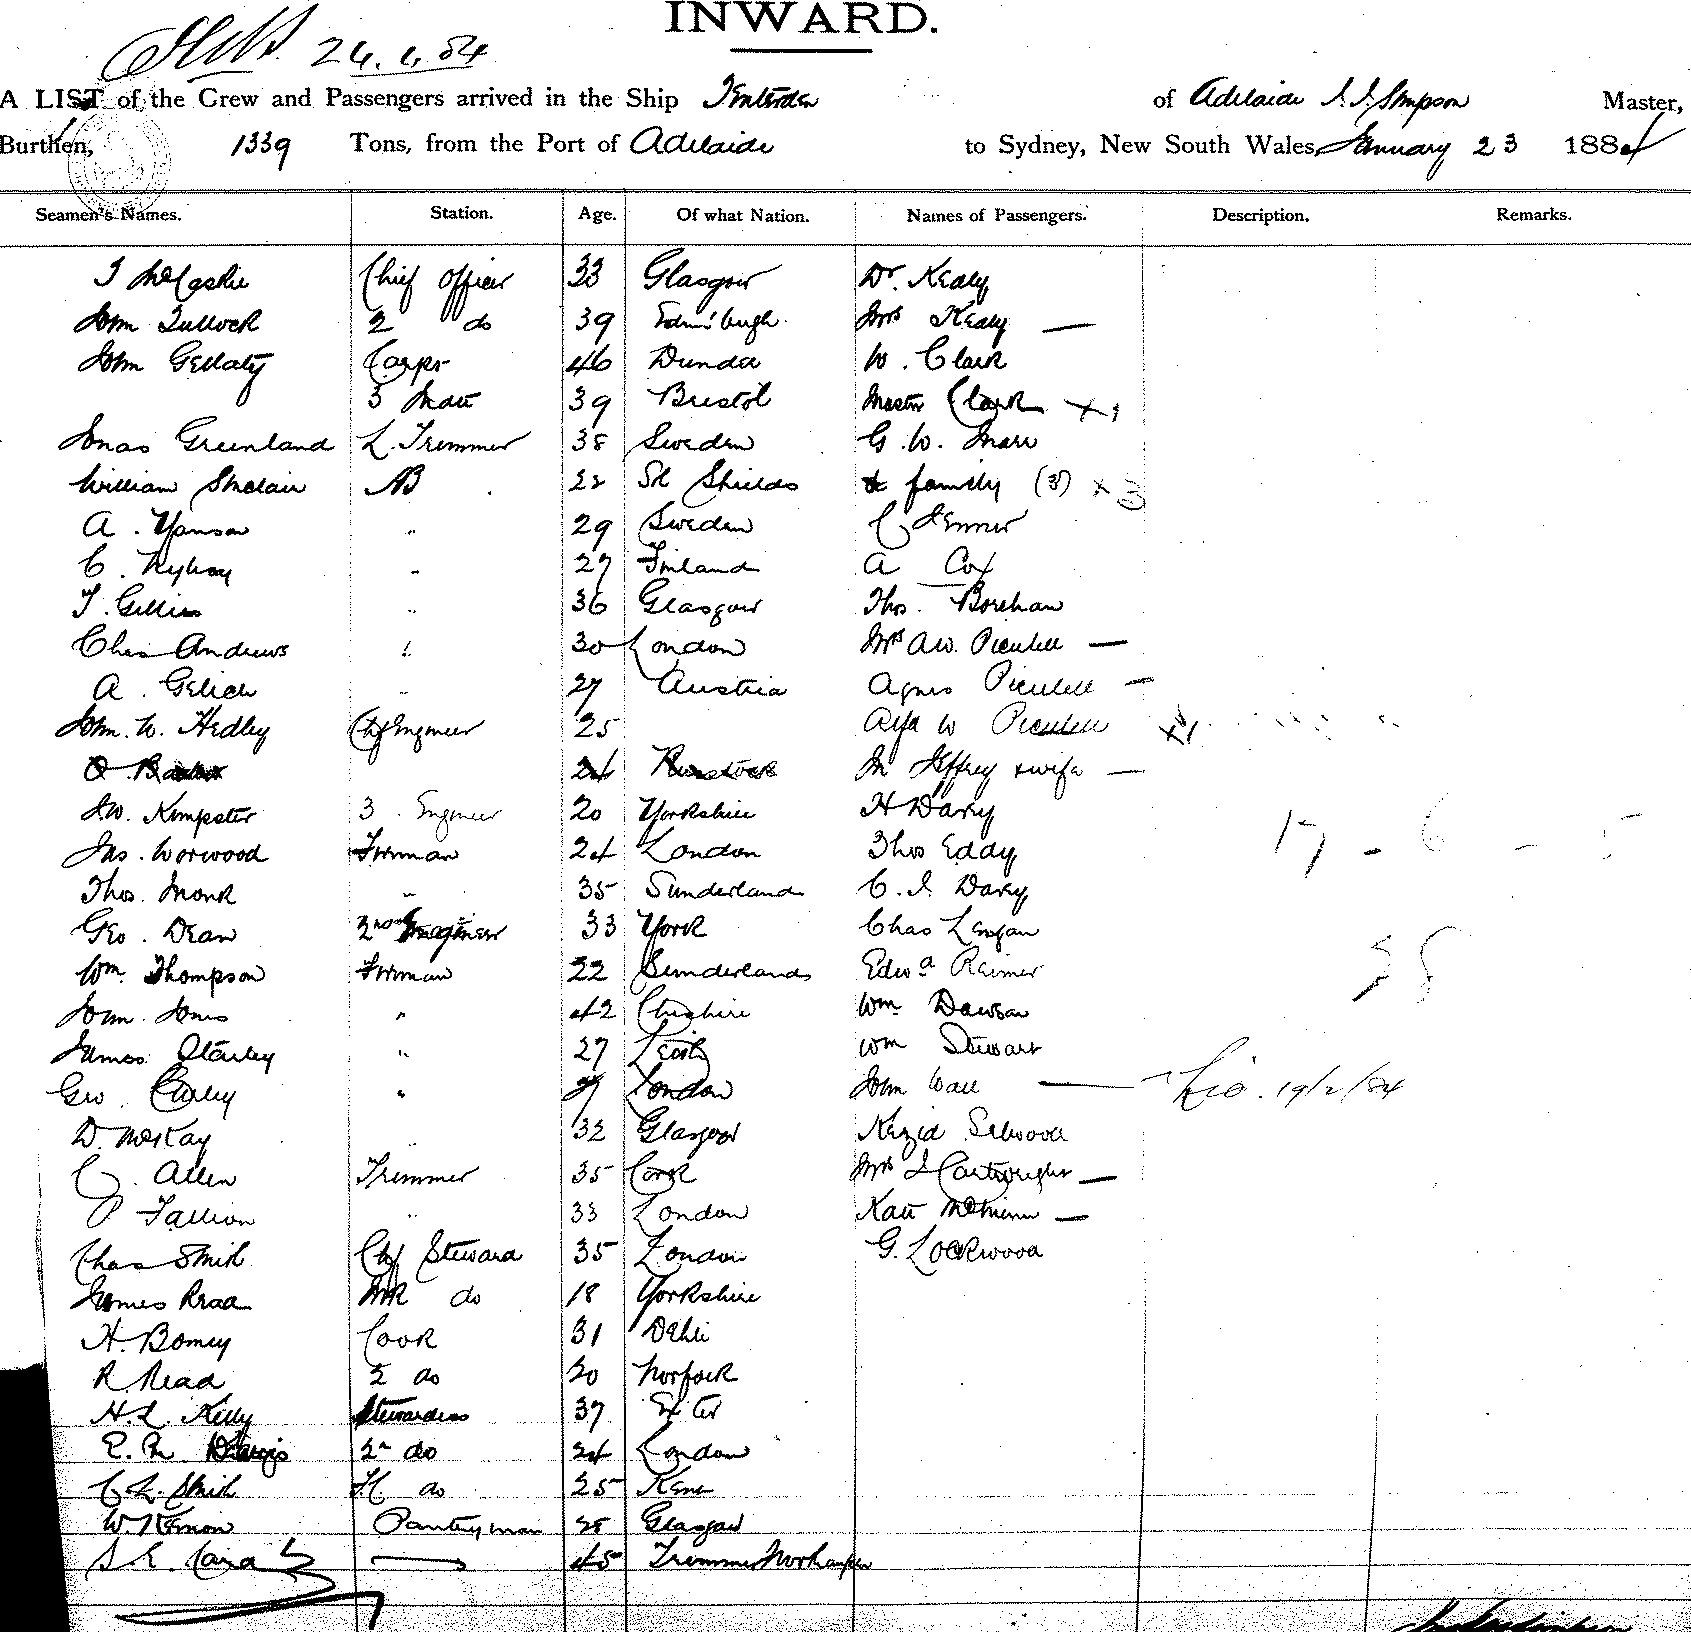 INWARD.
24.1.84
A LIST of the Crew and Passengers arrived in the Ship Tenterden of Adelaide J. J. Simpson Master,
Burthen, 1339 Tons, from the Port of Adelaide to Sydney, New South Wales, January 23 1884
Seamen's Names. Station. Age. Of what Nation. Names of Passengers. Description. Remarks.
Chief Officer 33 Glasgow Dr. Kealy
John Tullock 2 do 39 Edinburgh Mrs Kealy —
John Gellaty Carpr 46 Dundee W. Clark
3 Mate 39 Bristol Master Clark
Jonas Greenland L. Trimmer 38 Sweden G. W. Marr
William Sinclair AB 22 Sh Shields & family (3) x 3
A. Yanson " 29 Sweden C Jenner
C. " 27 Finland A Cox
T. Gillies " 36 Glasgow Thos. Boreham
Chas Andrews " 30 London Mrs AW. Pierdell —
A. Gelich " 27 Austria Agnes Pierdell —
John. W. Hedley Chf Engineer 25 W Pierdell
24 M Jeffrey & wife —
J.W. Kempster 3. Engineer 20 Yorkshire H Davy
Jas. Worwood Fireman 24 London Thos Eddy 17 - 6 - 5
Thos. Monk " 35 Sunderland C. J. Davy
Geo. Dean 2nd Engineer 33 York Chas
Wm. Thompson Fireman 22 Sunderland Edwd Reimer
John Jones " 42 Cheshire Wm Dawson
James Stanley " 27 Leith Wm Stewart
Geo. " London John Wall — 19/2/84
D. McKay " 32 Glasgow Selwood
C. Allen Trimmer 35 Cork Mrs J Cartwright —
P Fallion " 33 London Kate —
Chas Smith Chf Steward 35 London G. Lockwood
James Read do 18 Yorkshire
H. Bomey Cook 31 Dehli
R. Read 2 do 20 Norfolk
H. L. Kelly Stewardess 37 Exeter
E. M Davis 2n do 24 London
C L. Smith do 25 Kent
W. Pantryman 28 Glasgow
S. E. 45 Trimmer